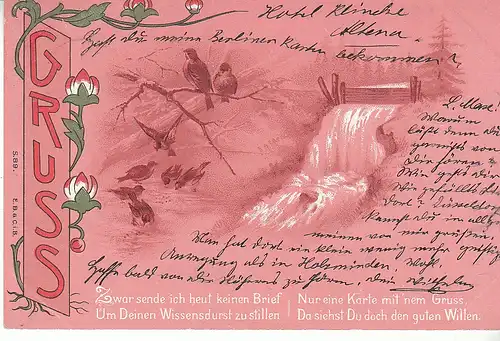 GRUSS
Hotel Klincke
Altena
Hast du meine Berliner Karten bekommen?
L. Max!
Warum
läßt denn du
garnichts von
Dir hören?
Wie geht's dir?
Wie gefällt's
dort? Düsseldorf
kannst du im allg.
meinen von mir grüßen.
Man hat dort ein klein wenig mehr geistige
Anregung als in Holzminden, wohl.
Hoffe bald von dir Näheres zu hören, dein Wilhelm
S. 89. E. B. & C. i. B.
Zwar sende ich heut keinen Brief
Um Deinen Wissensdurst zu stillen
Nur eine Karte mit 'nem Gruss.
Da siehst Du doch den guten Willen.